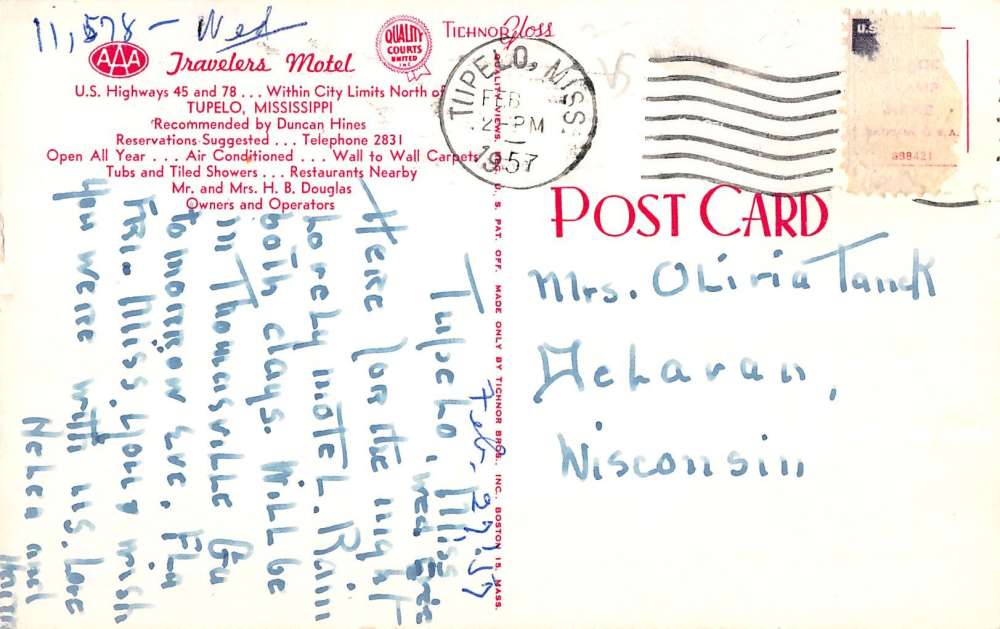 11,578 - Wed
AAA
Travelers Motel
U.S. Highways 45 and 78 . . . Within City Limits North of
TUPELO, MISSISSIPPI
Recommended by Duncan Hines
Reservations Suggested . . . Telephone 2831
Open All Year . . . Air Conditioned . . . Wall to Wall Carpets
Tubs and Tiled Showers . . . Restaurants Nearby
Mr. and Mrs. H. B. Douglas
Owners and Operators
QUALITY
COURTS
UNITED
INC
TICHNOR Gloss
TUPELO, MISS.
FEB
2-PM
1957
U.S.
698421
POST CARD
QUALITY VIEWS, U. S. PAT. OFF. MADE ONLY BY TICHNOR BROS., INC., BOSTON 15, MASS.
Feb, 27, 57
Tupelo, Miss
Wed Eve
Here for the night
Lovely motel. Rain
both days. Will be
in Thomasville Ga
tomorrow Eve. Fla
Fri. Miss you & wish
you were with us. Love
Helen and
Mrs. Oliria Tanck
Delavan,
Wisconsin